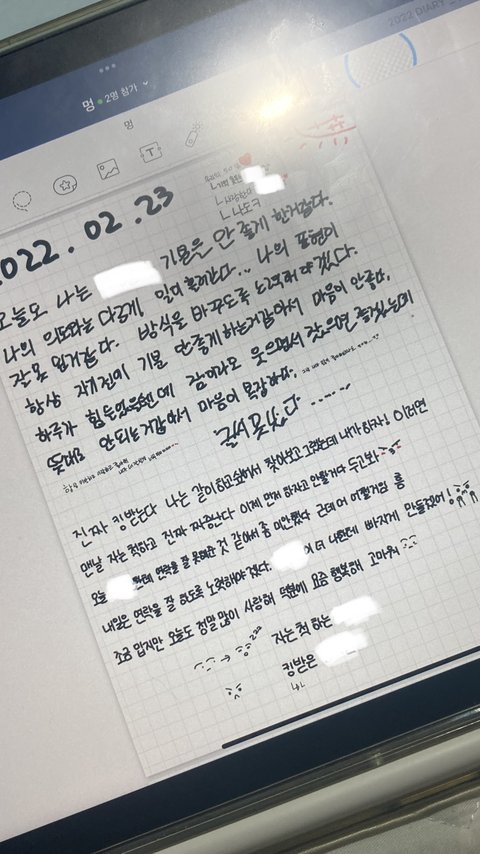 2022 DIARY
멍 2명 참가
멍
2022.02.23
ㄴ 사랑해
ㄴ 나도ㅋ
오늘도 나는 기분을 안 좋게 한거같다.
나의 의도와는 다르게 일이 흘러간다... 나의 표현이
잘못 된거같다. 방식을 바꾸도록 노력해야겠다.
항상 자기전이 기분 안좋게하는거같아서 마음이 안좋다.
하루가 힘들었을텐데 잠이라도 웃으면서 잤으면 좋겠는데
뜻대로 안되는거같아서 마음이 복잡하다.
글씨 못났다 ......
진짜 킹받는다 나는 같이 하고싶어서 찾아보고 그랬는데 내가 하자! 이러면
맨날 자는척하고 진짜 짜증난다 이제 먼저 하자고 안할거다 두고봐
오늘 한테 연락을 잘 못해준 것 같아서 좀 미안했다 근데 어 어쩔거임 흠
내일은 연락을 잘 하도록 노력해야겠다. 이 더 나한테 빠지게 만들겠어!
조금 밉지만 오늘도 정말 많이 사랑해 덕분에 요즘 행복해 고마워
자는 척 하는
킹받은